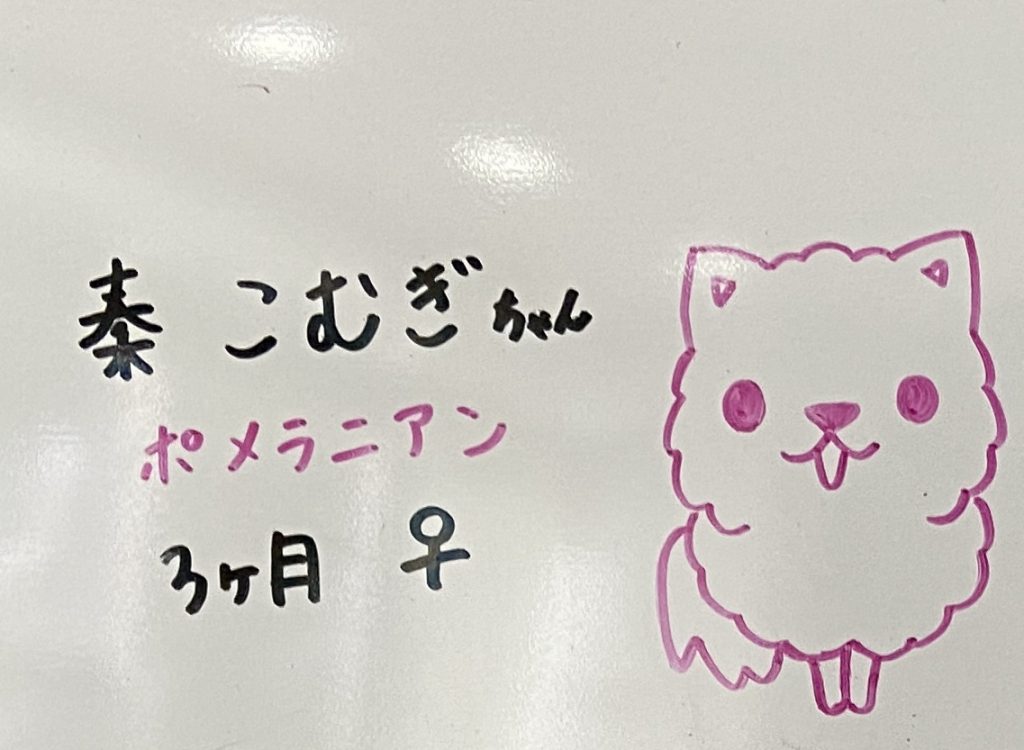 秦 こむぎちゃん
ポメラニアン
3ヶ月 ♀